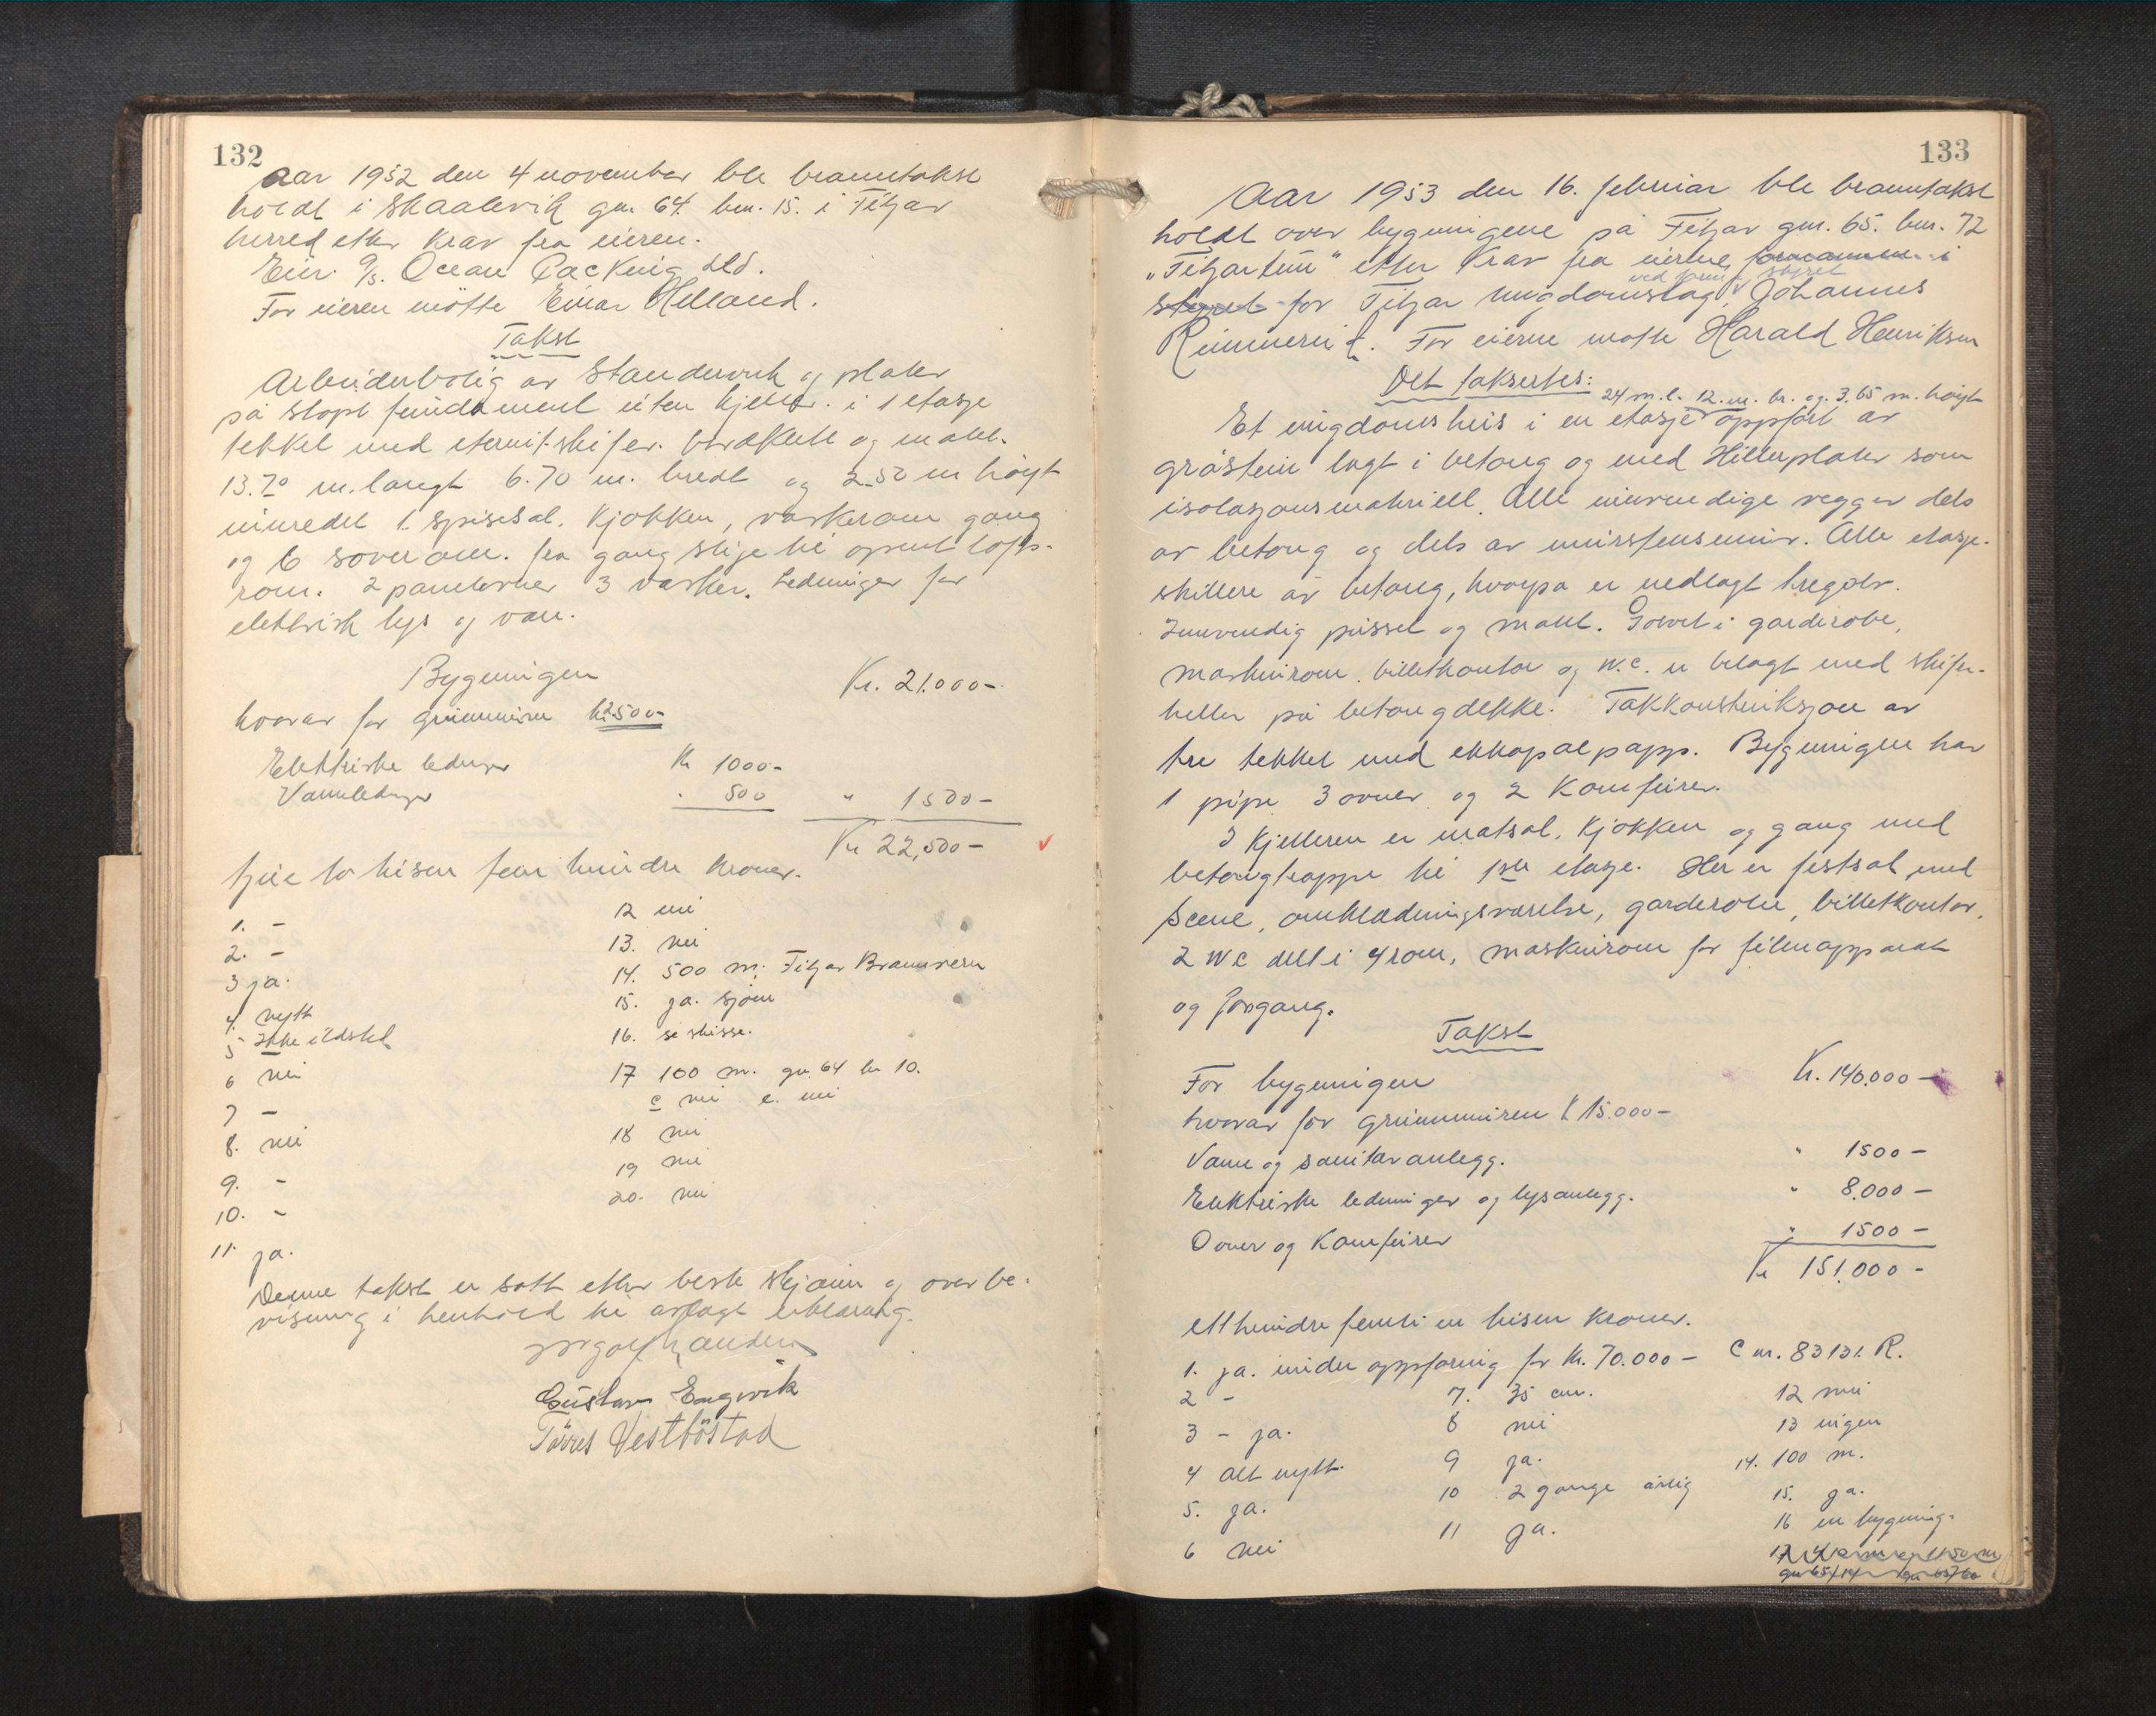 132
Aar 1952 den 4 november ble branntakst
holdt i Skaalevik gn. 64. bn. 15. i Fitjar
herred etter krav fra eieren.
Eier. A/s. Ocean Packing Ltd.
For eieren møtte Einar Helland.
Takst
Arbeiderbolig av Standerverk og plater
på støpt fundament uten kjeller. i 1 etasje
tekket med eternitskifer. utvendig og malt.
13.70 m. langt 6.70 m. bredt og 2.50 m høyt
innredet 1. spisesal. Kjøkken, vaskerom gang
og 6 soverom. fra gang stige til opent lofts-
rom. 2 panelovner 3 vasker. Ledninger for
elektrisk lys og van.
Bygningen Kr. 21.000-
hvorav for grunnmuren kr 2500-
Elektriske ledninger Kr 1000-
Vannledninger " 500 " 1500-
Kr 22,500-
tjue to tusen fem hundre kroner.
1. -
2. -
3 ja.
4. nytt
5 Ikke ildsted
6 nei
7 -
8. nei
9. -
10. -
11. ja.
12 nei
13. nei
14. 500 m. Fitjar Brannvern
15. ja. sjøen
16. se skisse.
17 100 m. gn. 64 bn 10.
c nei e. nei
18 nei
19 nei
20. nei
Denne takst er satt etter beste skjønn og overbe-
visning i henhold til avlagt erklæring.
Gustav Engevik
Tørres Vestbøstad
133
Aar 1953 den 16. februar ble branntakst
holdt over bygningene på Fitjar gn. 65. bn. 72
"Fitjartun" etter krav fra eierne formannen i
ved form. i styret
styret for Fitjar Ungdomslag, Johannes
Rimmereit. For eierne møtte Harald Henriksen
Det taksertes:
24 m. l. 12. m. br. og. 3.65 m. høyt
Et ungdomshus i en etasje oppført av
gråstein lagt i betong og med Hillerplater som
isolasjonsmateriell. Alle innvendige vegger dels
av betong og dels av murstensmur. Alle etasje-
skillere av betong, hvorpå er nedlagt tregolv.
Innvendig pusset og malt. Golvet i garderobe,
maskinrom. billettkontor og W.C. er belagt med skifer-
heller på betongdekke. Takkonstruksjon av
tre tekket med ekkopalpapp. Bygningen har
1 pipe 3 ovner og 2 Komfurer.
I Kjelleren er matsal. Kjøkken og gang med
betongtrappe til 1ste etasje. Her er festsal med
scene, omkledningsværelse, garderobe, billettkontor,
2 WC delt i 4 rom, maskinrom for filmapparat
og forgang.
Takst
For bygningen Kr. 140.000-
hvorav for grunnmuren K 15.000-
Vann og sanitæranlegg. " 1500-
Elektriske ledninger og lysanlegg. " 8.000-
Ovner og Komfurer " 1500-
Kr 151.000-
Etthundre femti en tusen kroner.
1. ja. under oppføring for Kr. 70.000- C nr. 83131. R.
2 -
3 - ja.
4 alt nytt.
5. ja.
6 nei
7. 35 cm.
8 nei
9 ja.
10 2 gange årlig
11 ja.
12 nei
13 ingen
14. 100 m.
15. ja.
16 en bygning.
gn 65/14